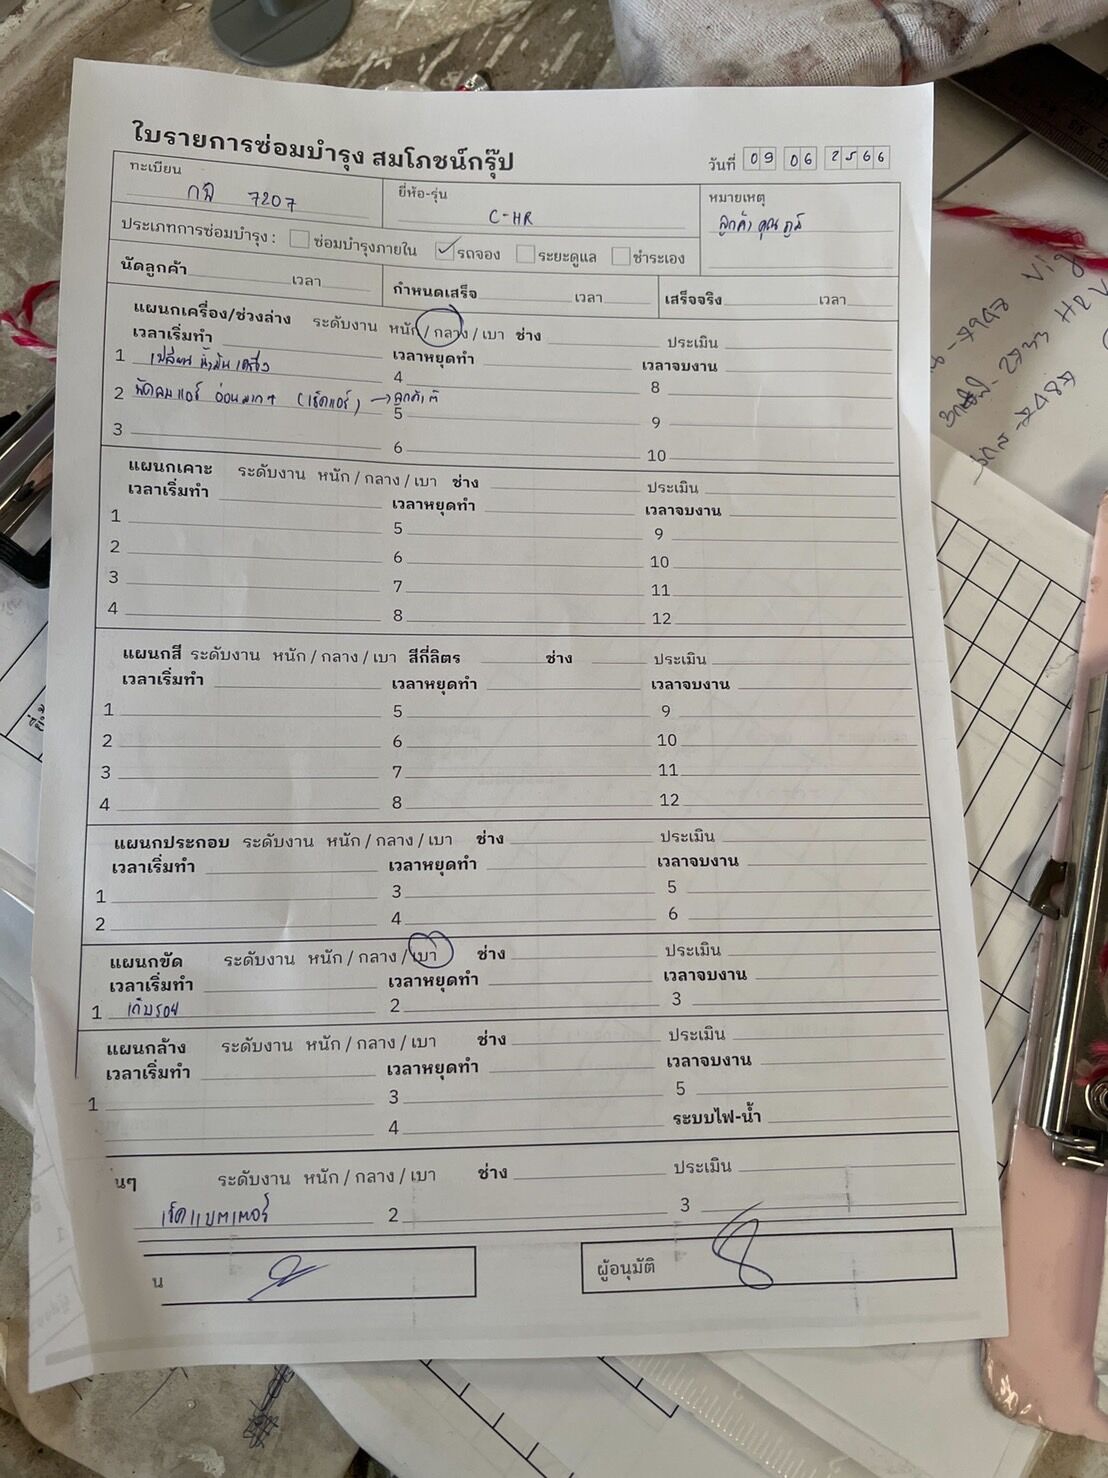 ใบรายการซ่อมบำรุง สมโภชน์กรุ๊ป
วันที่ 09 06 2566
ทะเบียน 7207
ยี่ห้อ-รุ่น C-HR
หมายเหตุ
ลูกค้า คุณ
ประเภทการซ่อมบำรุง : ซ่อมบำรุงภายใน ✓ รถจอง ระยะดูแล ชำระเอง
นัดลูกค้า เวลา กำหนดเสร็จ เวลา เสร็จจริง เวลา
แผนกเครื่อง/ช่วงล่าง ระดับงาน หนัก / กลาง / เบา ช่าง ประเมิน
เวลาเริ่มทำ เวลาหยุดทำ เวลาจบงาน
1 เปลี่ยนน้ำมันเครื่อง 4 8
2 พัดลมแอร์ อ่อนมากๆ (เช็คแอร์) → ลูกค้าติ 5 9
3 6 10
แผนกเคาะ ระดับงาน หนัก / กลาง / เบา ช่าง ประเมิน
เวลาเริ่มทำ เวลาหยุดทำ เวลาจบงาน
1 5 9
2 6 10
3 7 11
4 8 12
แผนกสี ระดับงาน หนัก / กลาง / เบา สีกี่ลิตร ช่าง ประเมิน
เวลาเริ่มทำ เวลาหยุดทำ เวลาจบงาน
1 5 9
2 6 10
3 7 11
4 8 12
แผนกประกอบ ระดับงาน หนัก / กลาง / เบา ช่าง ประเมิน
เวลาเริ่มทำ เวลาหยุดทำ เวลาจบงาน
1 3 5
2 4 6
แผนกขัด ระดับงาน หนัก / กลาง / เบา ช่าง ประเมิน
เวลาเริ่มทำ เวลาหยุดทำ เวลาจบงาน
1 เก็บรอย 2 3
แผนกล้าง ระดับงาน หนัก / กลาง / เบา ช่าง ประเมิน
เวลาเริ่มทำ เวลาหยุดทำ เวลาจบงาน
1 3 5
4 ระบบไฟ-น้ำ
นๆ ระดับงาน หนัก / กลาง / เบา ช่าง ประเมิน
เช็คแบตเตอร์ 2 3
น
ผู้อนุมัติ